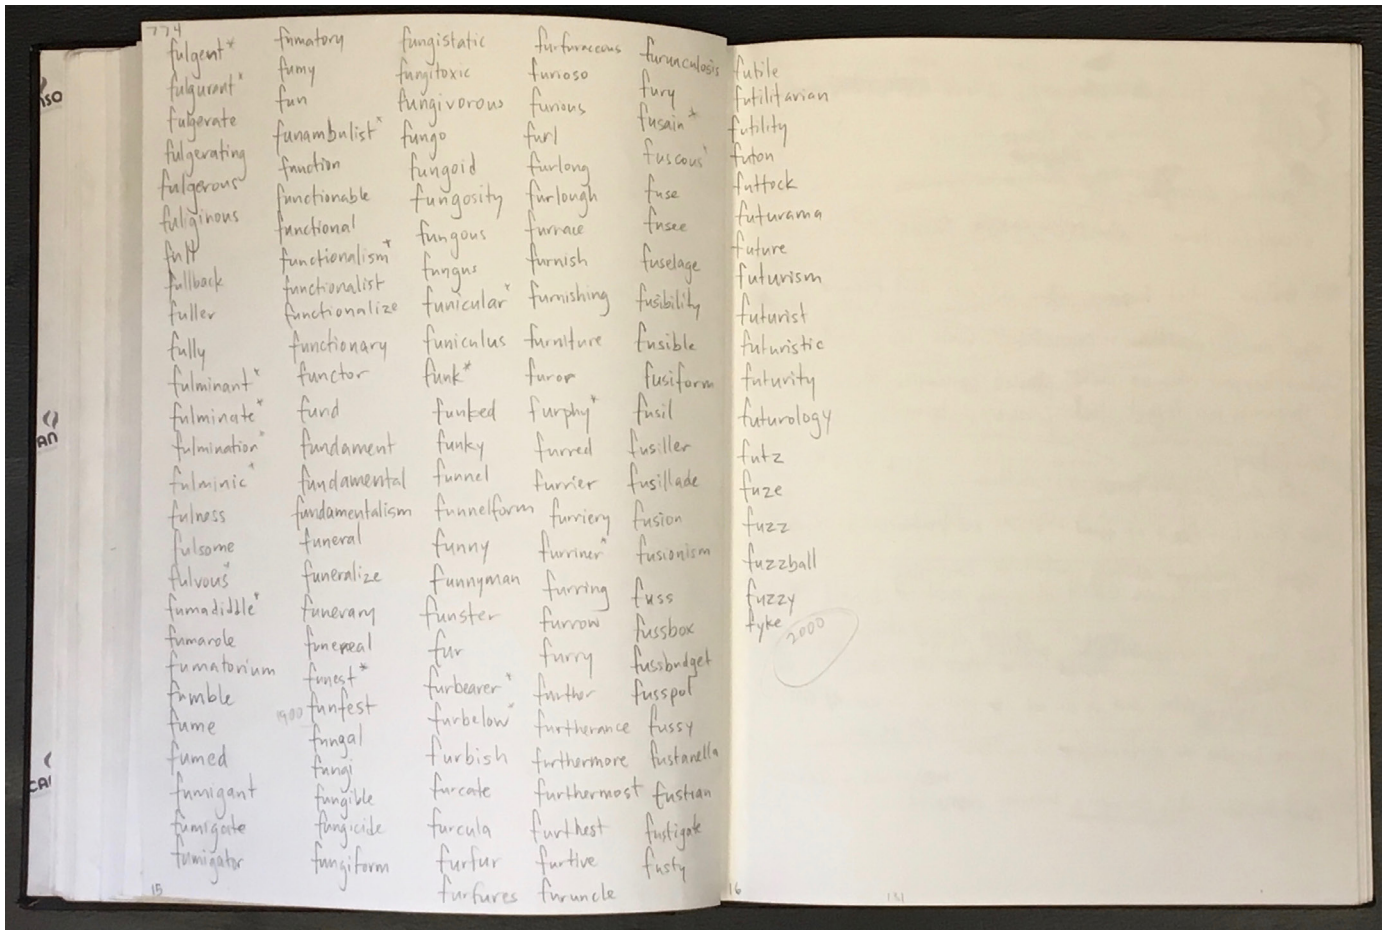 774
fulgent*
fulgurant*
fulgerate
fulgerating
fulgerous
fuliginous
full
fullback
fuller
fully
fulminant*
fulminate*
fulmination*
fulminic*
fulness
fulsome
fulvous*
fumadiddle*
fumarole
fumatorium
fumble
fume
fumed
fumigant
fumigate
fumigator
15
fumatory
fumy
fun
funambulist*
function
functionable
functional
functionalism*
functionalist
functionalize
functionary
functor
fund
fundament
fundamental
fundamentalism
funeral
funeralize
funerary
funereal
funest*
1900 funfest
fungal
fungi
fungible
fungicide
fungiform
fungistatic
fungitoxic
fungivorous
fungo
fungoid
fungosity
fungous
fungus
funicular*
funiculus
funk*
funked
funky
funnel
funnelform
funny
funnyman
funster
fur
furbearer*
furbelow*
furbish
furcate
furcula
furfur
furfures
furfuraceous
furioso
furious
furl
furlong
furlough
furnace
furnish
furnishing
furniture
furor
furphy*
furred
furrier
furriery
furriner*
furring
furrow
furry
further
furtherance
furthermore
furthermost
furthest
furtive
furuncle
furunculosis
fury
fusain*
fuscous*
fuse
fusee
fuselage
fusibility
fusible
fusiform
fusil
fusiller
fusillade
fusion
fusionism
fuss
fussbox
fussbudget
fusspot
fussy
fustanella
fustian
fustigate
fusty
futile
futilitarian
futility
futon
futtock
futurama
future
futurism
futurist
futuristic
futurity
futurology
futz
fuze
fuzz
fuzzball
fuzzy
fyke
2000
16